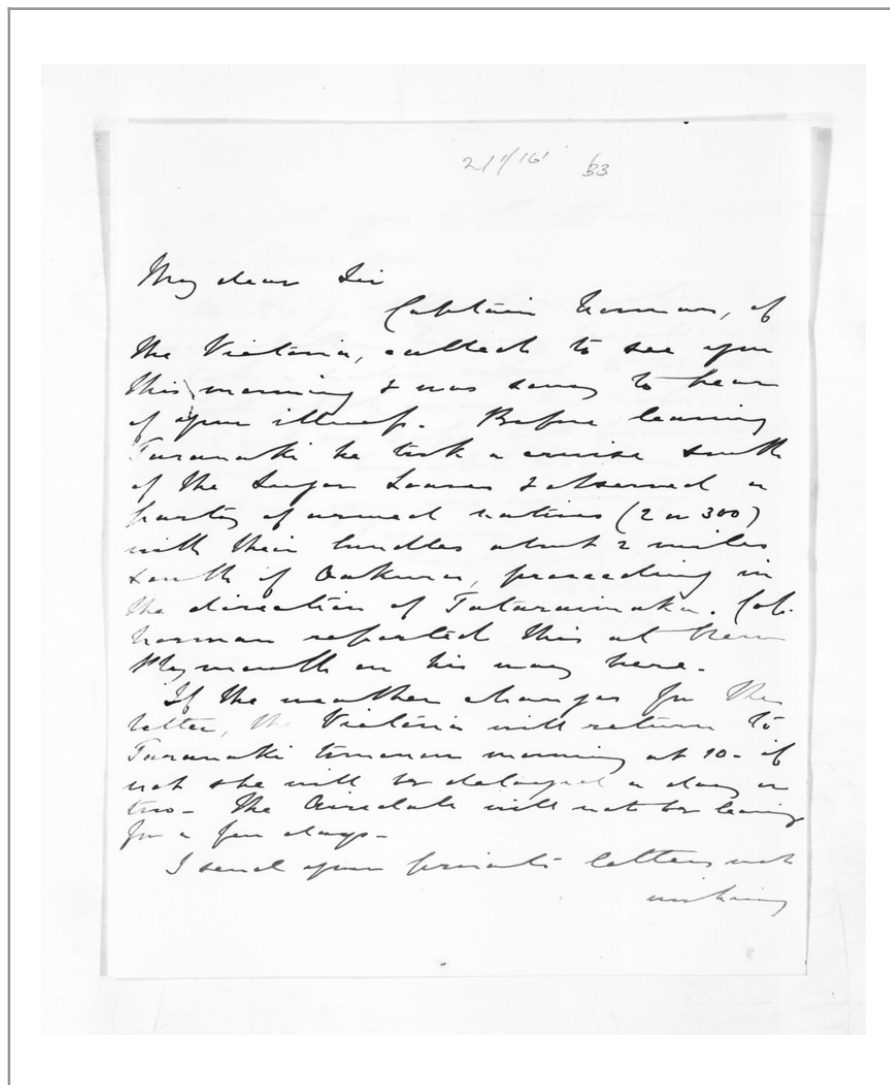 21/1/61 53
My dear Sir
Captain Norman, of
the Victoria, called to see you
this morning & was sorry to hear
of your illness. Before leaving
Taranaki he took a cruise south
of the Sugar Loaves & observed a
party of armed natives (2 or 300)
with their bundles about 2 miles
south of Oakura, proceeding in
the direction of Tataraimaka. Cap.
Norman reported this at New
Plymouth on his way here.
If the weather changes for the
better, the Victoria will return to
Taranaki tomorrow morning at 10 - if
not she will be delayed a day or
two - The Airedale will not be leaving
for a few days -
I send your private letters not
wishing